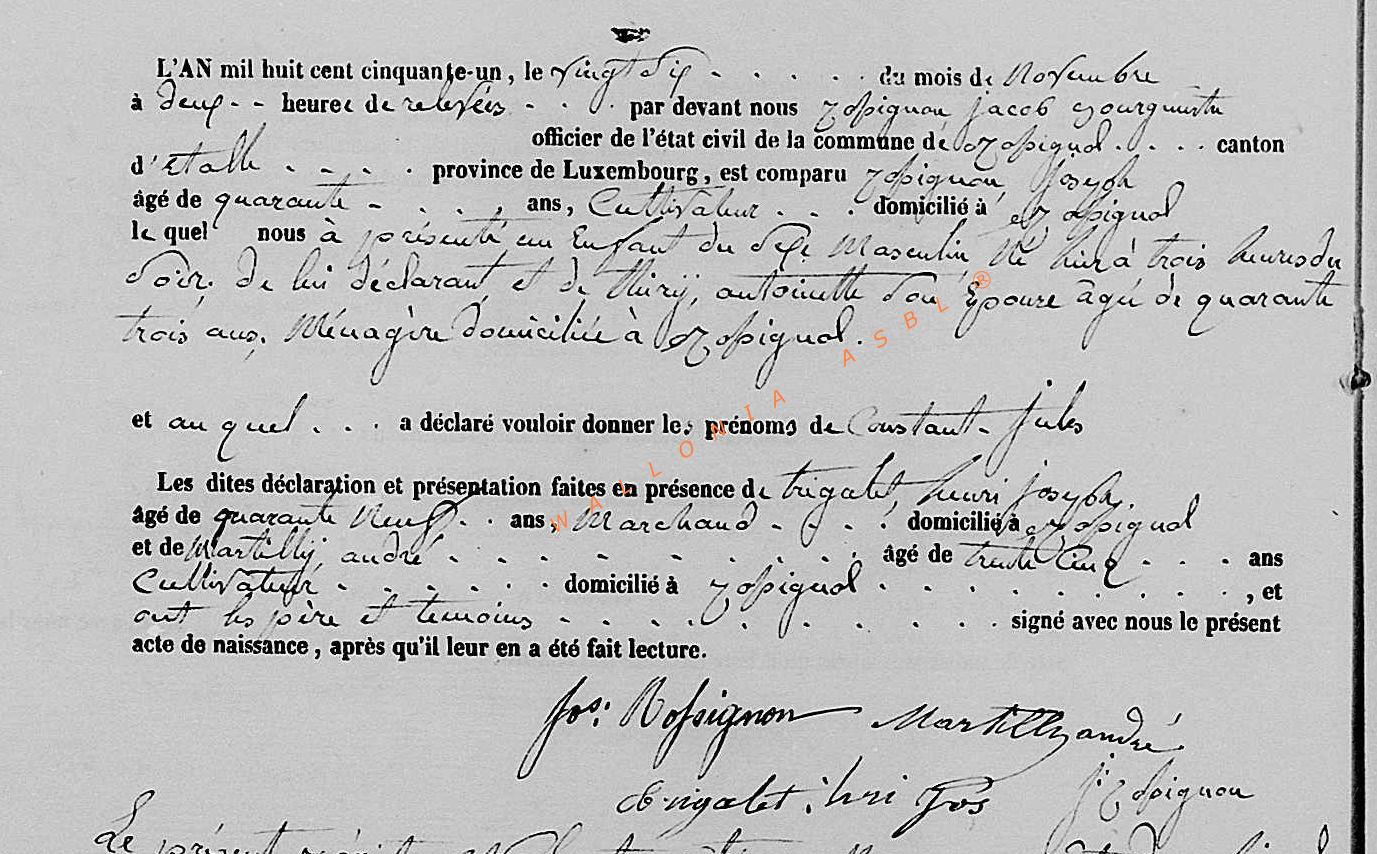 L'AN mil huit cent cinquante-un, le vingt Six . . . . . du mois de Novembre
à deux - - heures de relevées - . . . par devant nous Rossignon jacob Bourguemestre
officier de l'état civil de la commune de Rossignol . . . . canton
d'Etalle . - - . province de Luxembourg, est comparu Rossignon, Joseph
âgé de quarante - . . . , ans, Cultivateur . - . . domicilié à Rossignol
le quel nous à présenté un Enfant du Sexe Masculin Né hier à trois heures du
Soir, de lui déclarant et de thiry, antoinette Son Epouse âgée de quarante
trois ans, Ménagère domiciliée à Rossignol.
et au quel . . . a déclaré vouloir donner les prénoms de Constant - Jules
Les dites déclaration et présentation faites en présence de trigalet, henri joseph,
âgé de quarante Neuf - . . ans, Marchand - . . . domicilié à Rossignol
et de Martilly, andré . . . - - - - . . . . âgé de trente Cinq - - - . ans
Cultivateur - - . . . . . domicilié à Rossignol . . . . . . . . . , et
ont les père et temoins - - - . . . . . . . . signé avec nous le présent
acte de naissance, après qu'il leur en a été fait lecture.
Jos: Rossignon Martilly andré
trigalet : hri Jos j: Rossignon
Le présent
WALLONIA ASBL ®